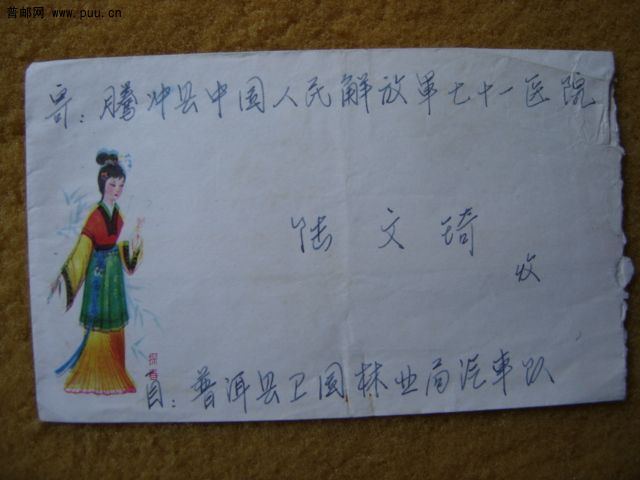 普邮网 www.puu.cn
寄：腾冲县中国人民解放军七十一医院
陆文琦
收
探春
自：普洱县卫国林业局汽车队